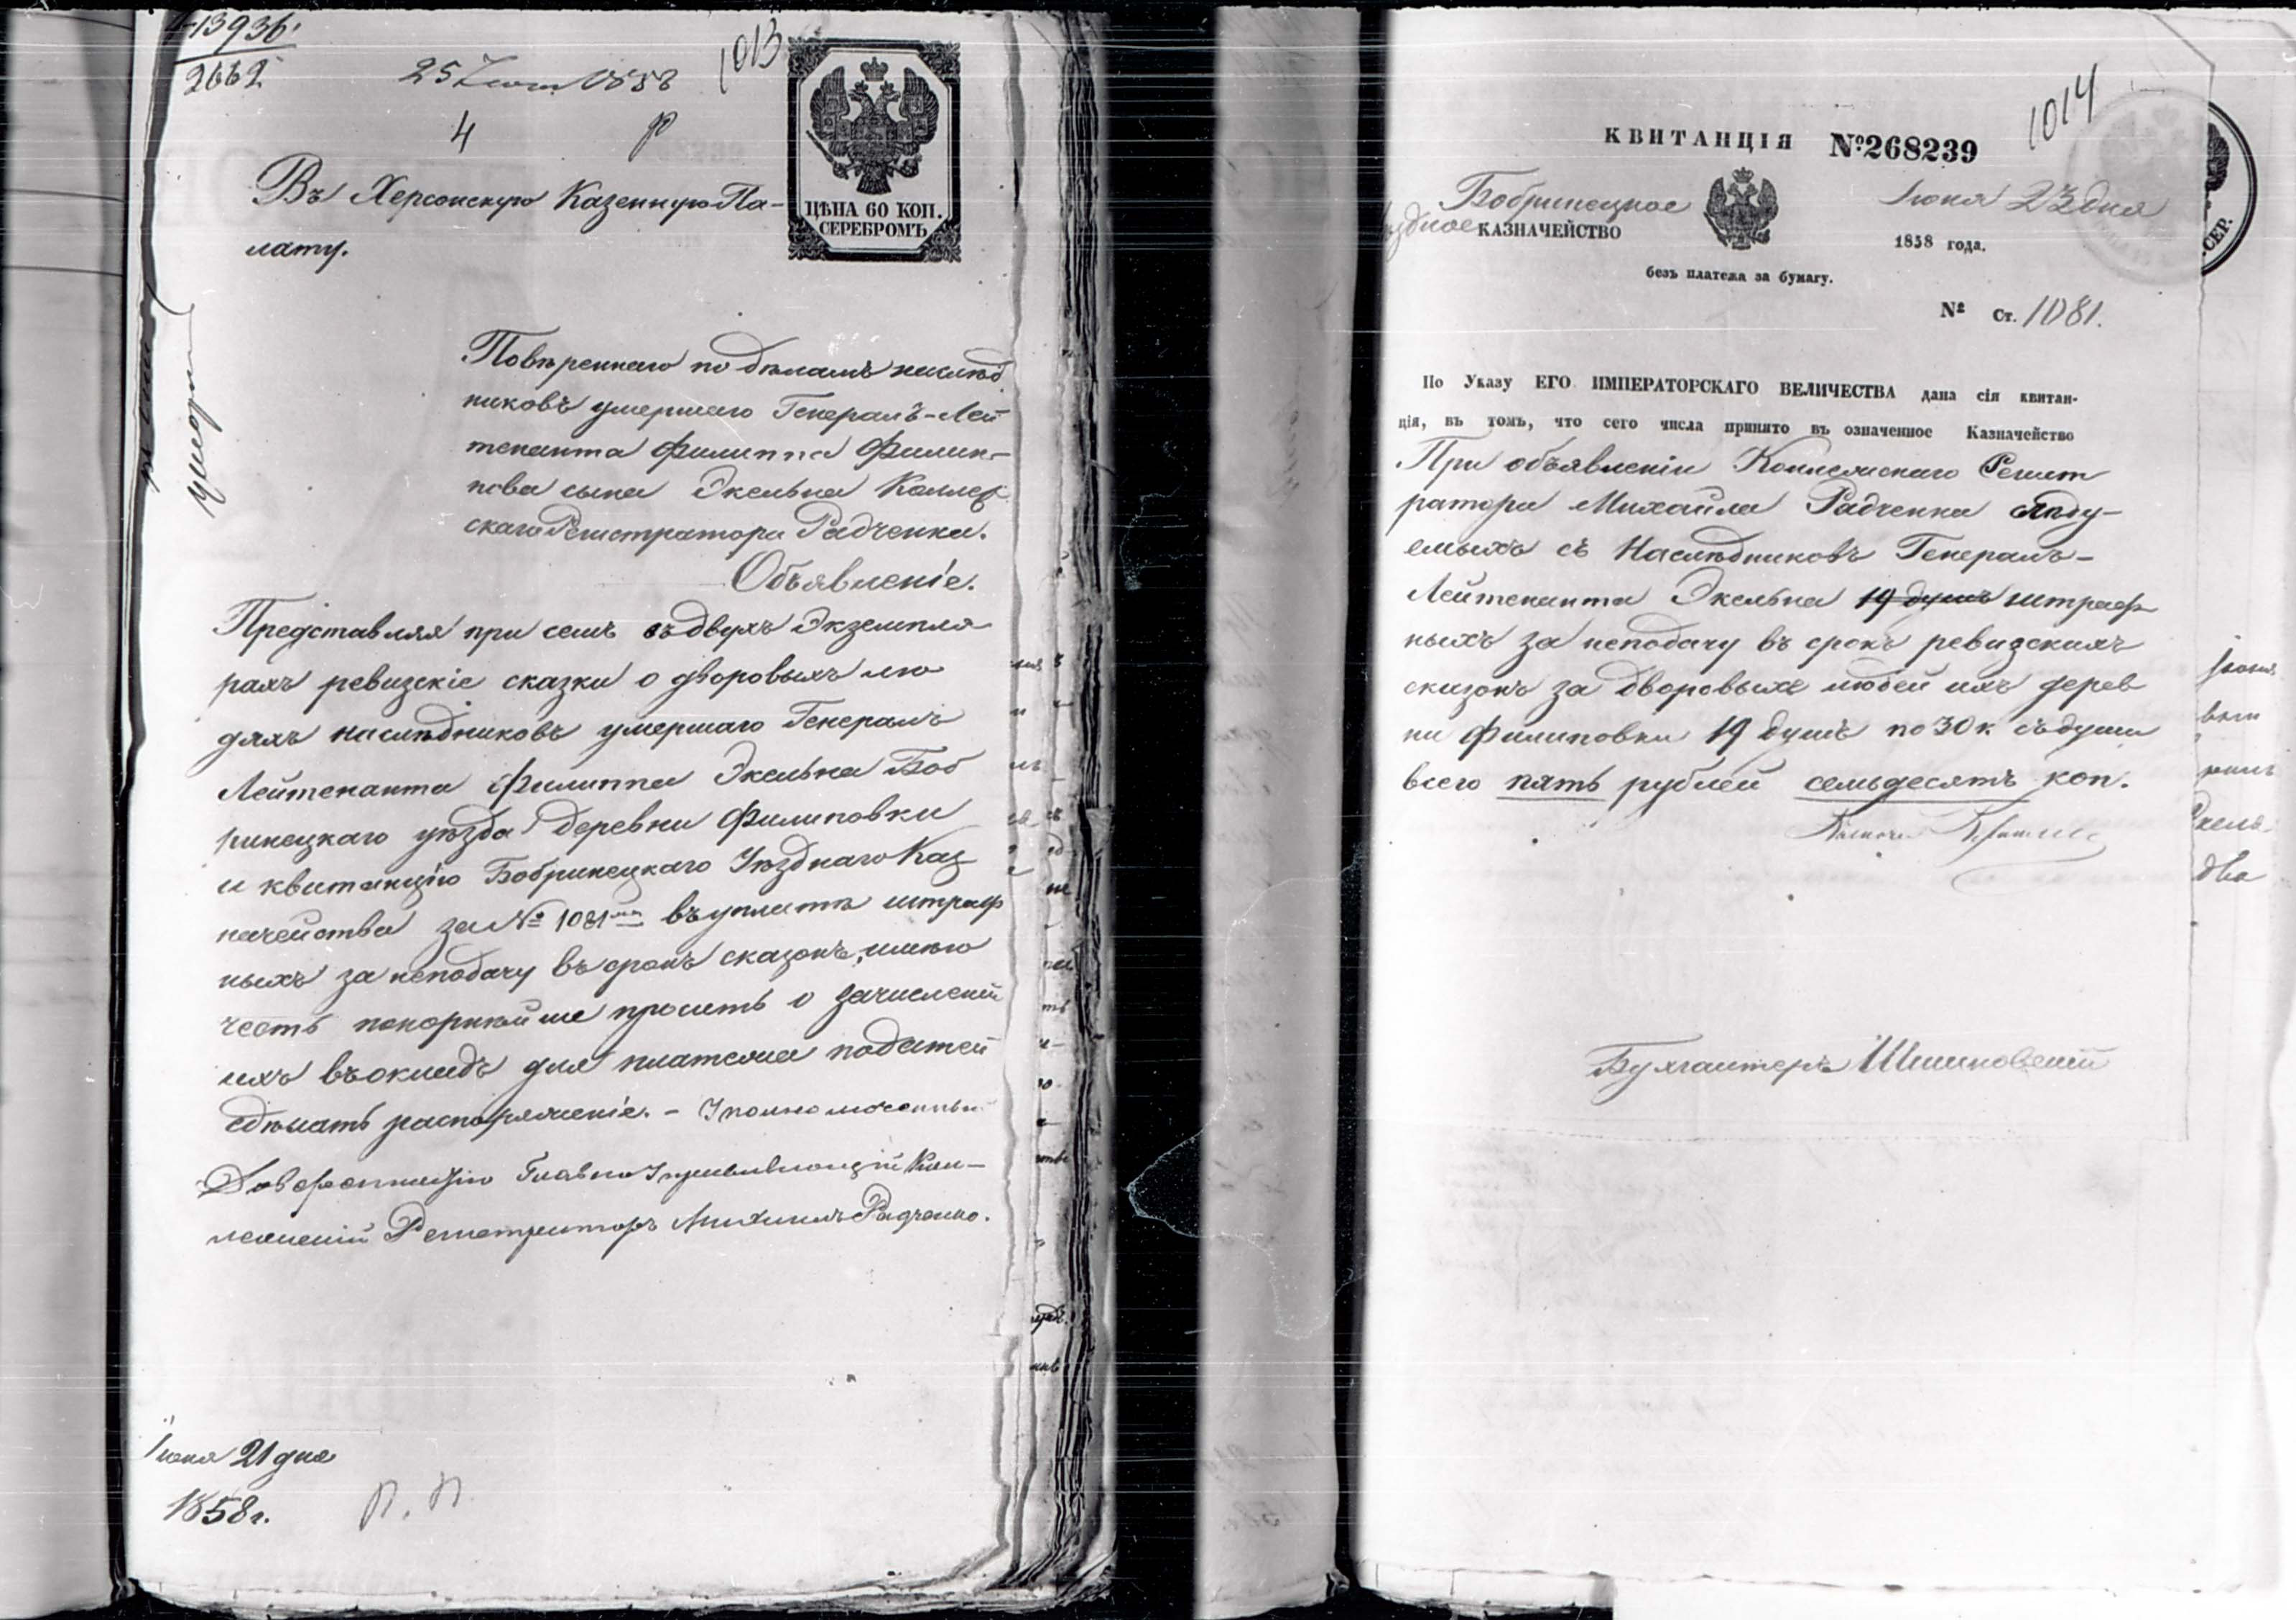 13936.
2662
25 Іюня 1858
1013
4 р
ЦѢНА 60 КОП.
СЕРЕБРОМЪ
Въ Херсонскую Казенную Па-
лату.
Повѣреннаго по дѣламъ наслѣд
никовъ умершаго Генералъ-Лей
тенанта Филиппа Филип-
пова сына Экельна Коллеж
скаго Регистратора Радченка.
Объявленіе.
Представляя при семъ въ двухъ Экземпля
рахъ ревизскіе сказки о дворовыхъ лю
дяхъ наслѣдниковъ умершаго Генералъ
Лейтенанта Филиппа Экельна Боб
ринецкаго уѣзда деревни Филиповки
и квитанцію Бобринецкаго Уѣзднаго Каз
начейства за № 1081мъ въ уплатѣ штраф
ныхъ за неподачу въ срокъ сказокъ, имѣю
честь покорнѣйше просить о зачисленіи
ихъ въ окладъ для платежа податей
сдѣлать распоряженіе. – Уполномоченный
Главно Управляющій Кол-
лежскій Регистраторъ Михаилъ Радченко.
Іюня 21 дня
1858 г.
П. П
1014
КВИТАНЦІЯ №268239
Бобринецкое
ѣздное КАЗНАЧЕЙСТВО
Іюня 23 дня
1858 года.
СЕР.
безъ платежа за бумагу.
№ ст. 1081.
По Указу ЕГО ИМПЕРАТОРСКАГО ВЕЛИЧЕСТВА дана сія квитан-
ція, въ томъ, что сего числа принято въ означенное Казначейство
При объявленіи Коллежскаго Регист
ратора Михаила Радченка слѣду-
емыхъ съ Наслѣдниковъ Генералъ-
Лейтенанта Экельна 19 душъ штраф
ныхъ за неподачу въ срокъ ревизскихъ
сказокъ за дворовыхъ людей ихъ дерев
ни Филиповки 19 душъ по 30 к съ души
всего пять рублей семьдесятъ коп.
Бухгалтеръ Шишковскій
два